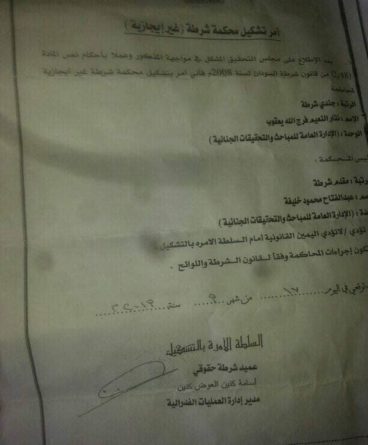 أمر تشكيل محكمة شرطة (غير إيجازية)
بعد الإطلاع على مجلس التحقيق المشكل في مواجهة المذكور وعملاً بأحكام نص المادة
من قانون شرطة السودان لسنة 2008م فإني آمر بتشكيل محكمة شرطة غير ايجازية
لمحاكمة
الرتبة : جندي شرطة
الإسم : نزار النعيم فرج الله يعقوب
الوحدة : (الإدارة العامة للمباحث والتحقيقات الجنائية)
رئيس المحكمة :
الرتبة : مقدم شرطة
عبدالفتاح محمود خليفة
(الإدارة العامة للمباحث والتحقيقات الجنائية)
تؤدي / لاتؤدي اليمين القانونية أمام السلطة الآمره بالتشكيل
تكون إجراءات المحاكمة وفقاً لقانون الشرطة واللوائح .
في اليوم ١٧ من شهر ٩ سنة
السلطة الآمرة بالتشكيل
عميد شرطة حقوقي
أسامة كنين العوض كنين
مدير إدارة العمليات الفدرالية